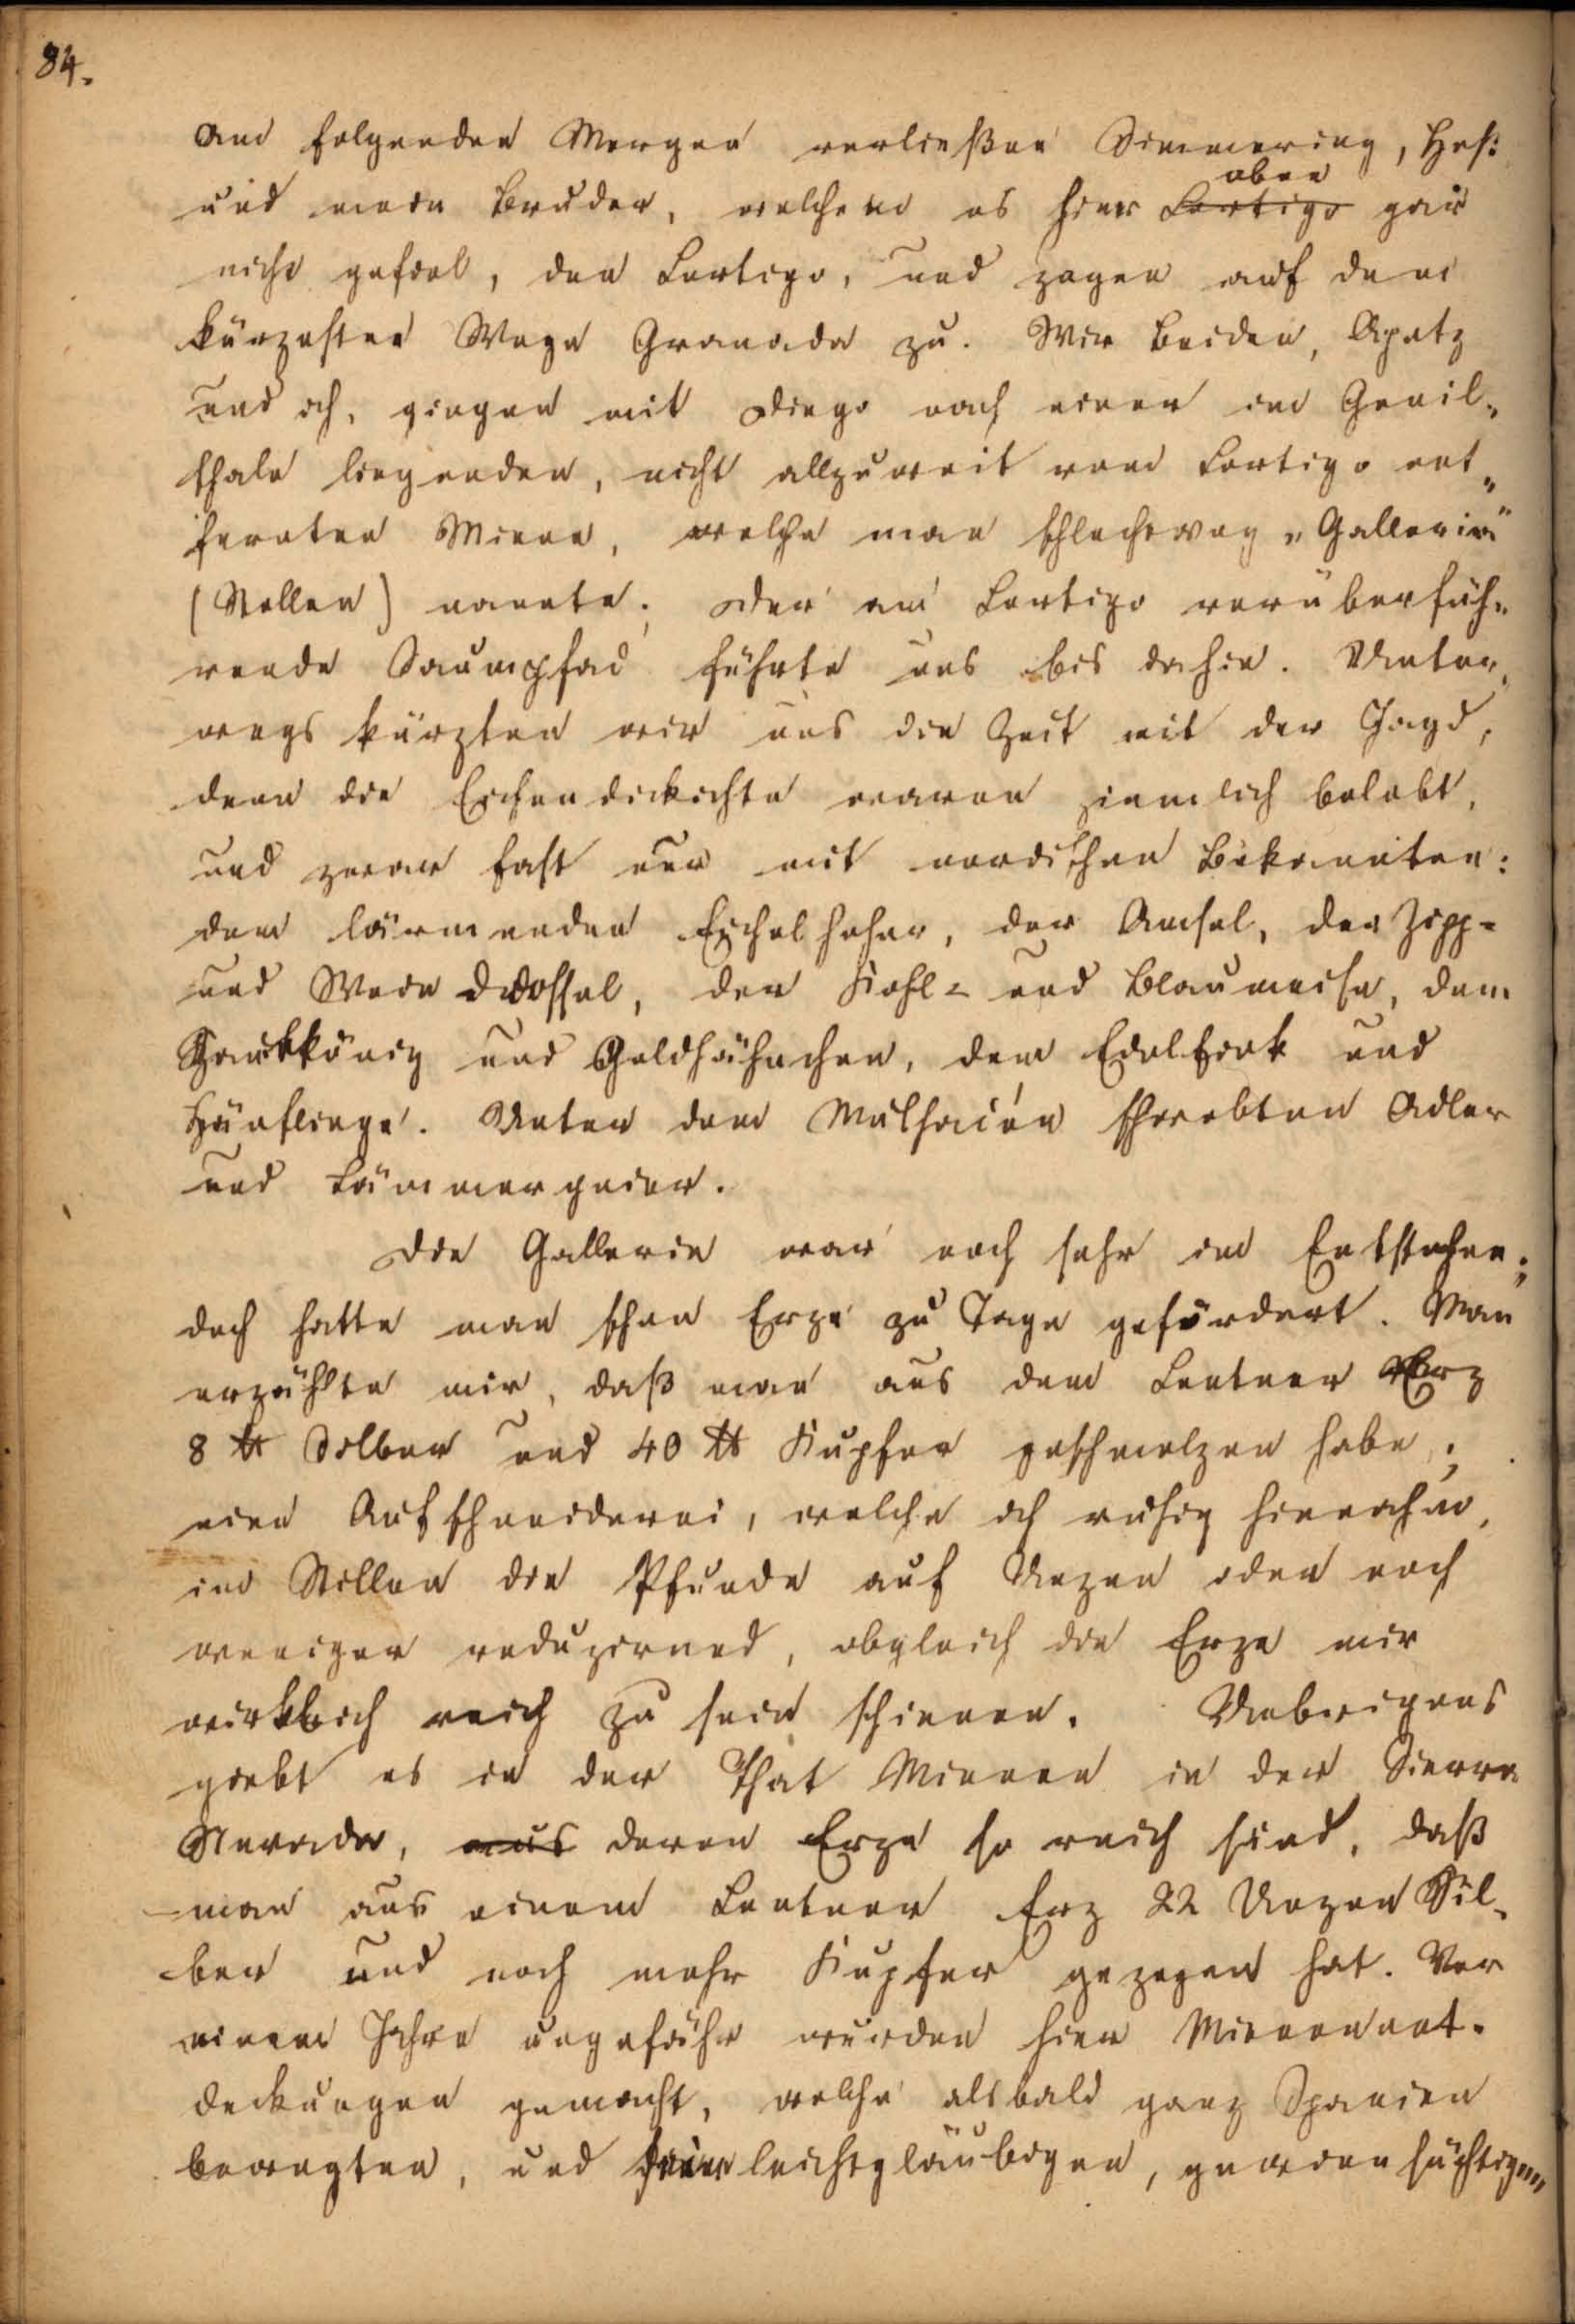 84.
Am folgenden Morgen verließen Simmering, Heß
und mein Bruder, welchem es hier oben Cortigo gar
nicht gefiel, den Cortigo, und zogen auf dem
kürzesten Wege Granada zu. Wir beiden, Apetz
und ich, gingen mit Diego nach einer im Genil-
thale liegenden, nicht allzuweit vom Cortigo ent-
fernten Miene, welche man schlechtweg „Gallerie"
(Stollen) nannte. Der am Cortigo vorüberfüh-
rende Saumpfad führte uns bis dahin. Unter-
wegs kürzten wir uns die Zeit mit der Jagd,
denn die Eichendickichte waren ziemlich belebt,
und zwar fast nur mit nordischen Bekannten:
dem lärmenden Eichelheher, der Amsel, der Zipp-
und Weindrossel, der Kohl- und Blaumeise, dem
Zaunkönig und Goldhähnchen, dem Edelfink und
Hänflinge. Unter dem Mulhaién schwebten Adler
und Lämmergeier.
Die Gallerie war noch sehr im Entstehen;
doch hatte man schon Erze zu Tage gefördert. Man
erzählte mir, daß man aus dem Centner Erz
8 ℔ Silber und 40 ℔ Kupfer geschmolzen habe;
eine Aufschneiderei, welche ich ruhig hinnahm,
im Stillen die Pfunde auf Unzen oder noch
weniger reduzirend, obgleich die Erze mir
wirklich reich zu sein schienen. Uebrigens
giebt es in der That Mienen in der Sierra
Nevada, aus deren Erze so reich sind, daß
man aus einem Centner Erz 22 Unzen Sil-
ber und noch mehr Kupfer gezogen hat. Vor
einem Jahre ungefähr wurden hier Mienenent-
deckungen gemacht, welche alsbald ganz Spanien
bewegten, und seine leichtgläubigen, gewinnsüchtigen